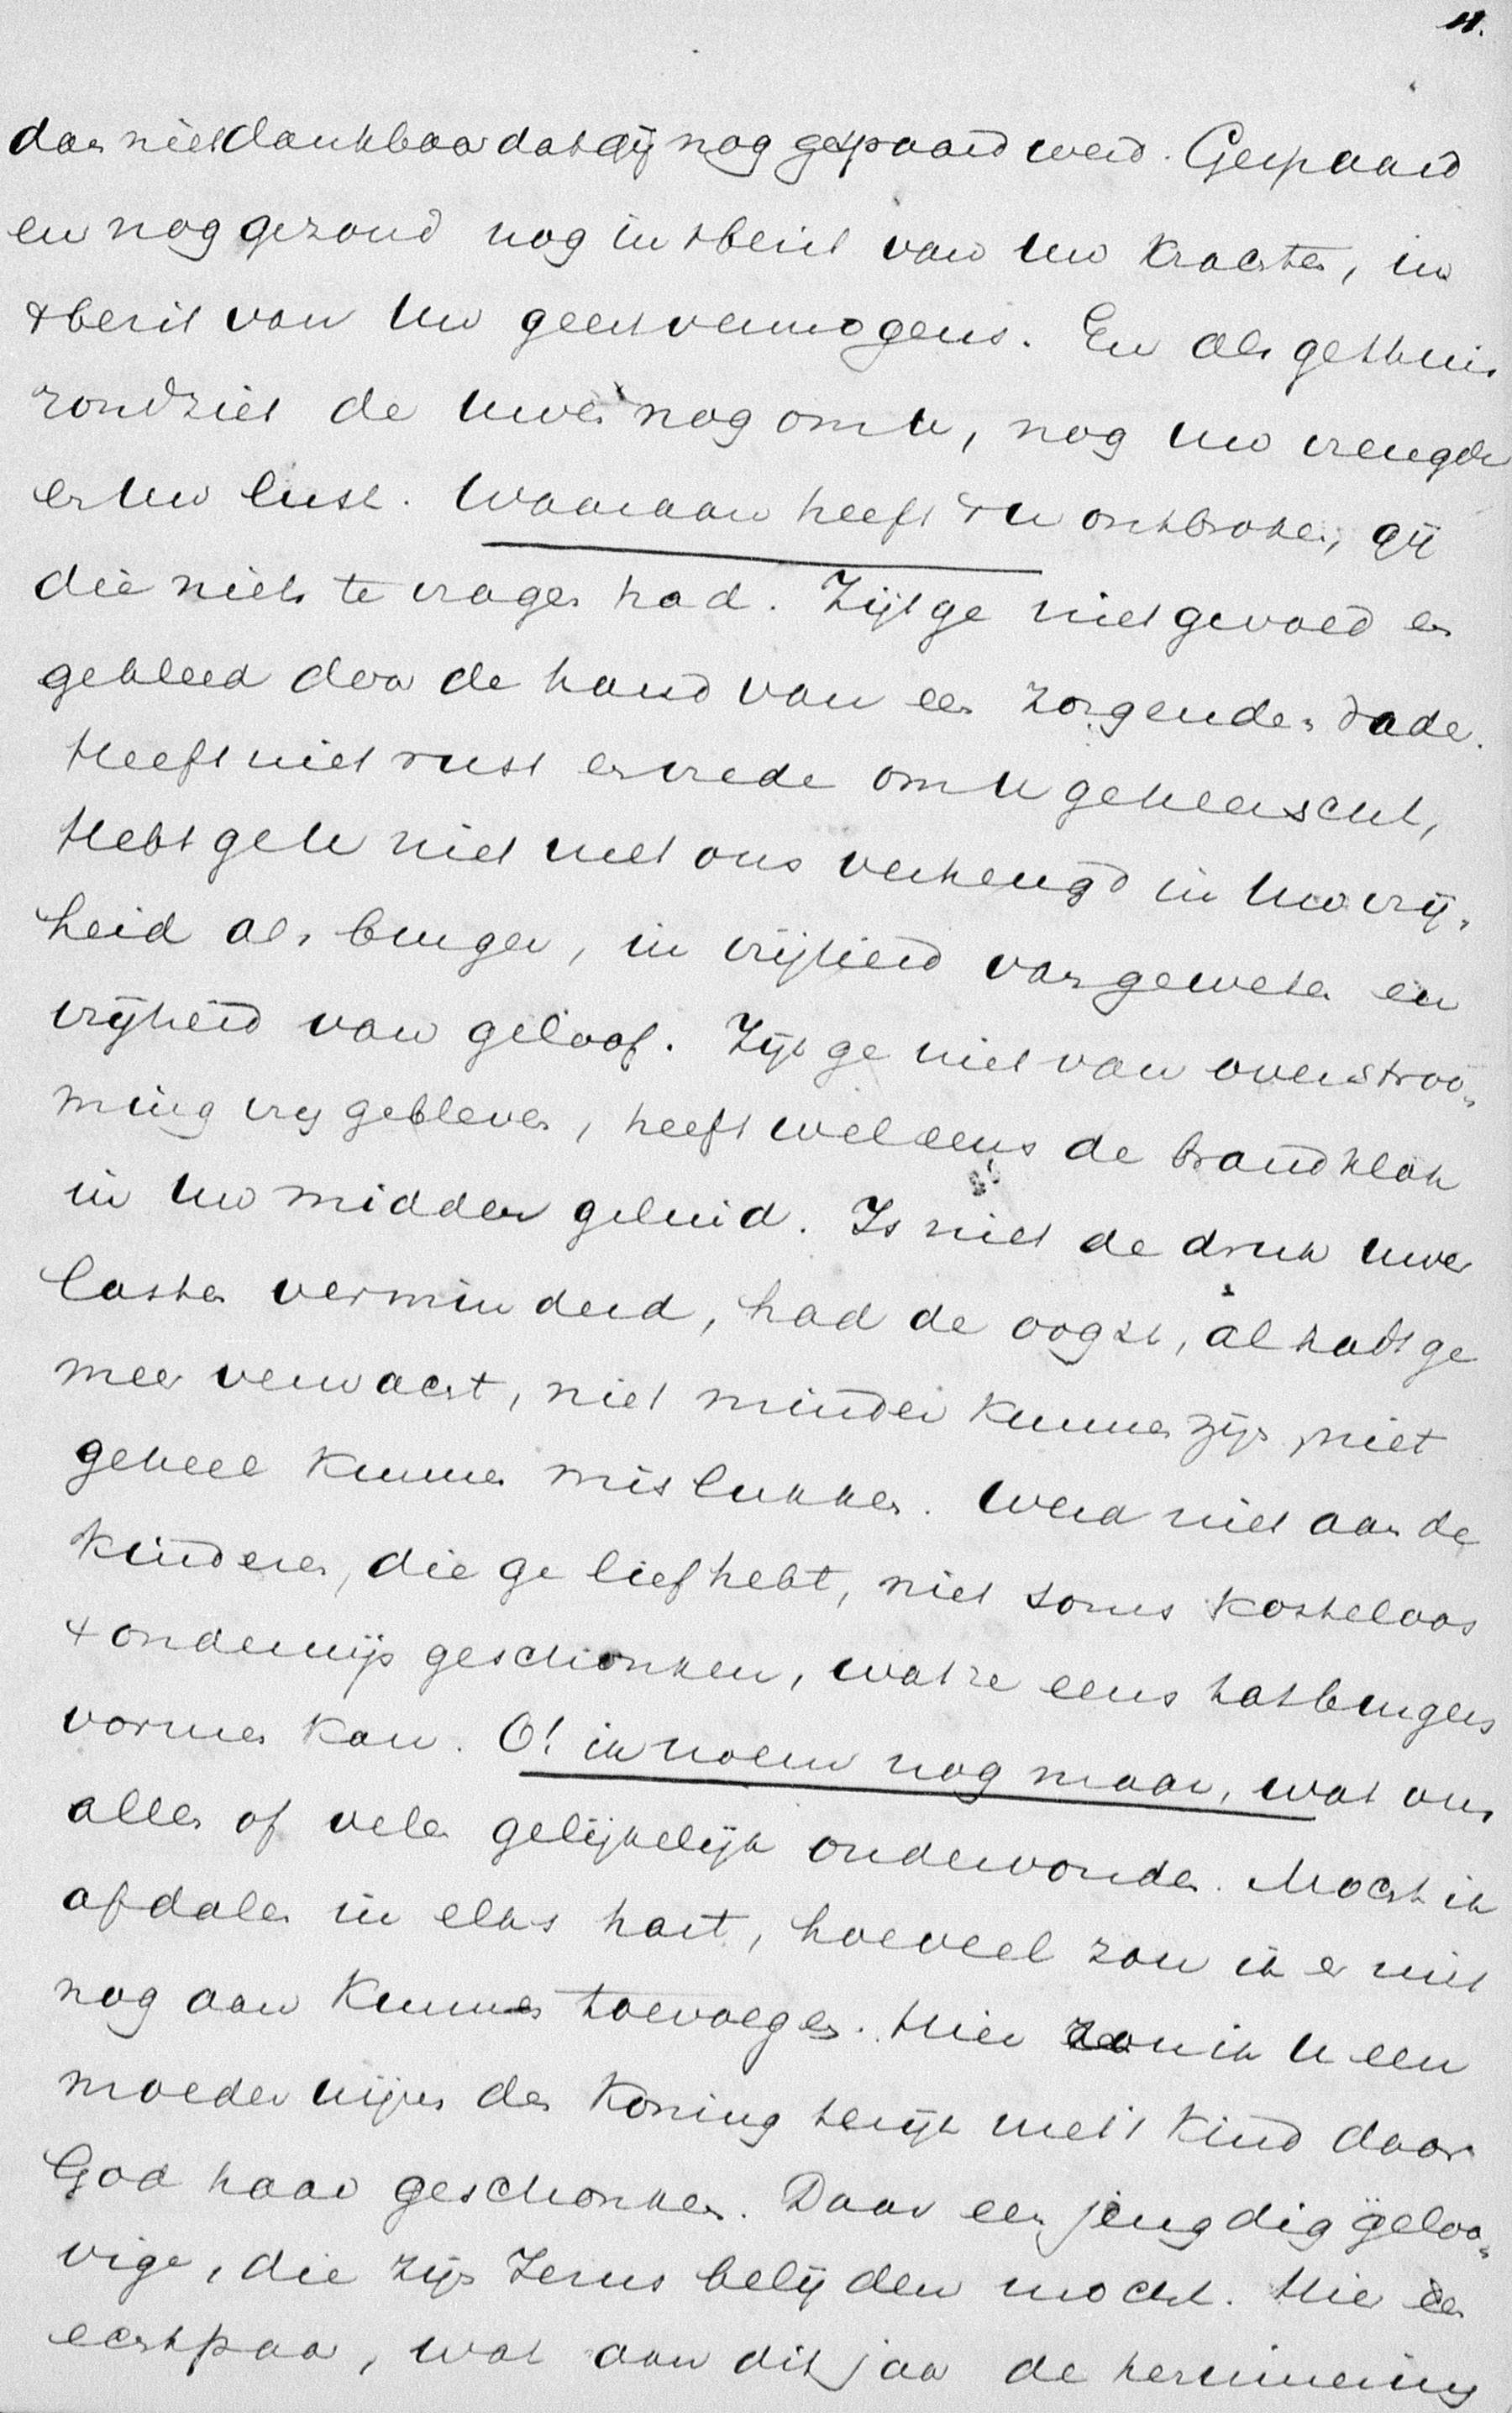 11.
dan niet dankbaar dat gij nog gespaard werd. Gespaard
en nog gezond nog in 't bezit van Uw krachten, in
't bezit van Uw geestvermogens. En als ge thuis
rondziet de Uwen nog om U, nog Uw vreugde
en Uw lust. Waaraan heeft 't U ontbroken, gij
die niets te vragen had. Zijt ge niet gevoed en
gekleed door de hand van een zorgenden Vader.
Heeft niet rust en vrede om U geheerscht,
Hebt ge U niet met ons verheugd in Uw vrij-
heid als burger, in vrijheid van geweten en
vrijheid van geloof. Zijt ge niet van overstroo-
ming vrij gebleven, heeft wel eens de brandklok
in Uw midden geluid. Is niet de druk Uwer
lasten verminderd, had de oogst, al hadt ge
meer verwacht, niet minder kunnen zijn, niet
geheel kunnen mislukken. Werd niet aan de
kinderen, die ge liefhebt, niet soms kosteloos
't onderwijs geschonken, wat ze eens tot burgers
vormen kan. O! ik noem nog maar, wat ons
allen of velen gelijkelijk ondervonden. Mocht ik
afdalen in elks hart, hoeveel zou ik er niet
nog aan kunnen toevoegen. Hier zou ik U een
moeder wijzen den Koning te rijk met 't kind door
God haar geschonken. Daar een jeugdig geloo-
vige, die zijn Jezus belijden mocht. Hier een
echtpaar, wat aan dit jaar de herinnering